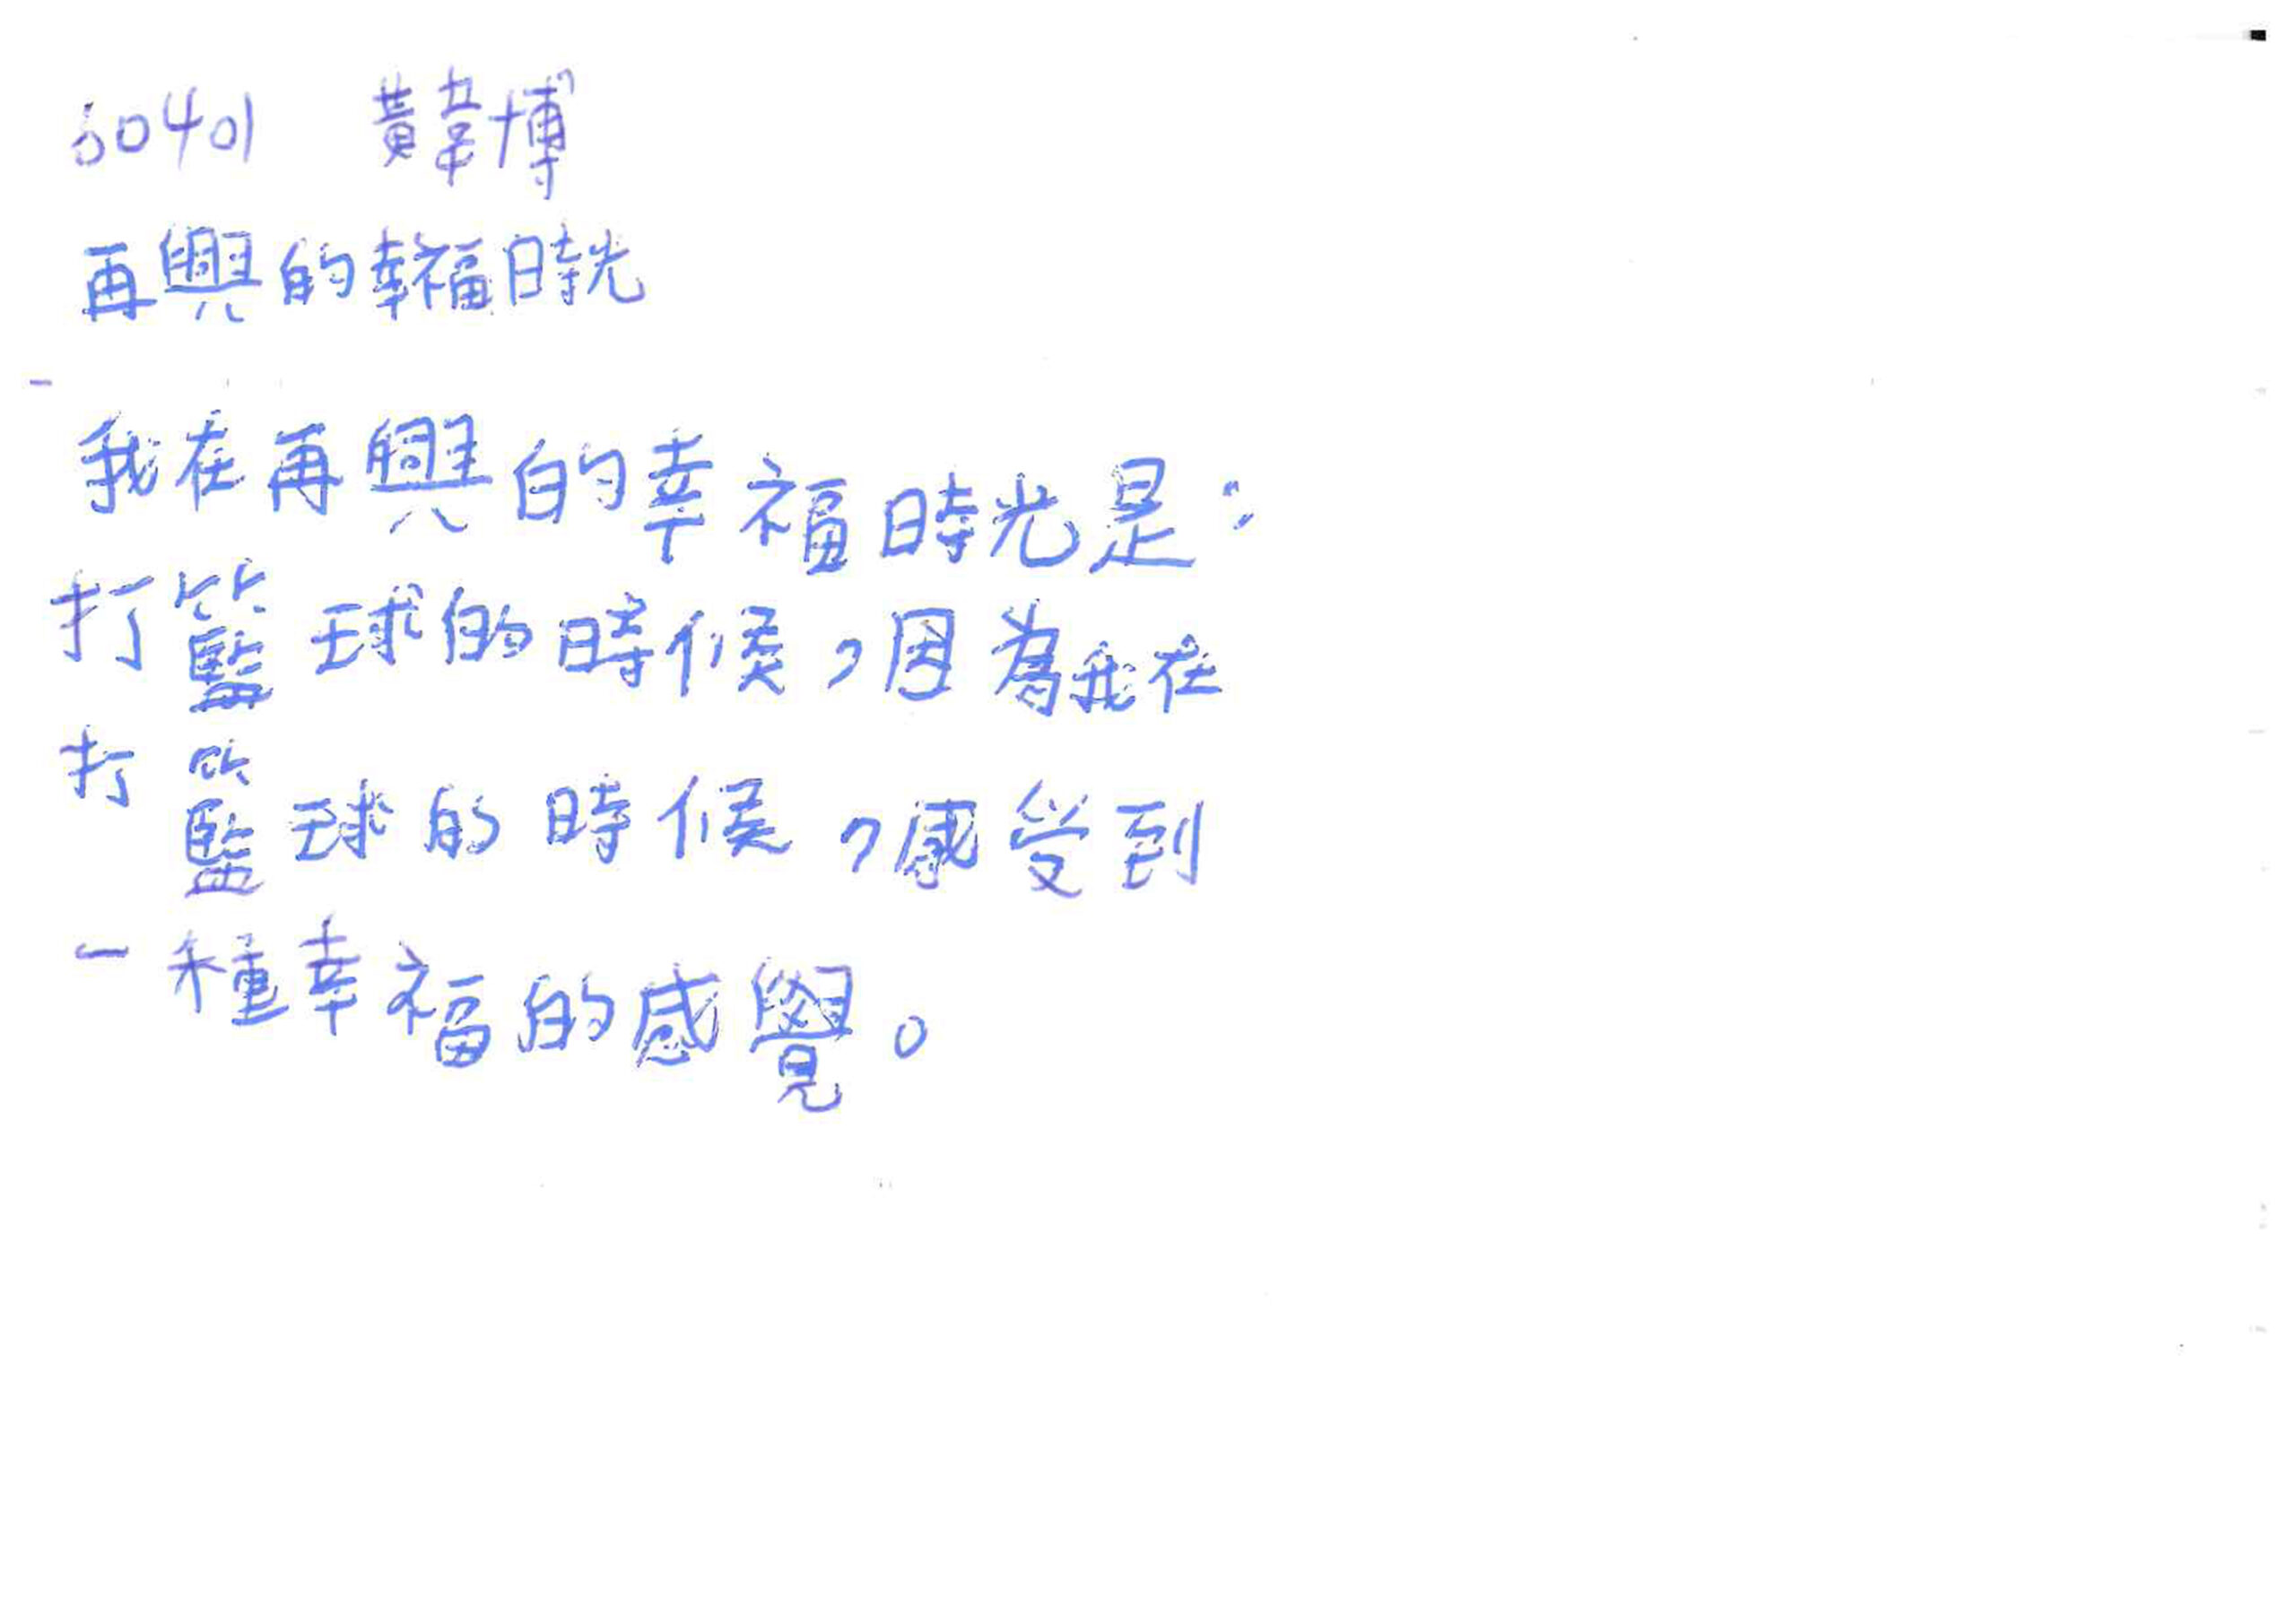 60401 黃韋博
再興的幸福時光
我在再興的幸福時光是:
打籃球的時候,因為我在
打籃球的時候,感受到
一種幸福的感覺。